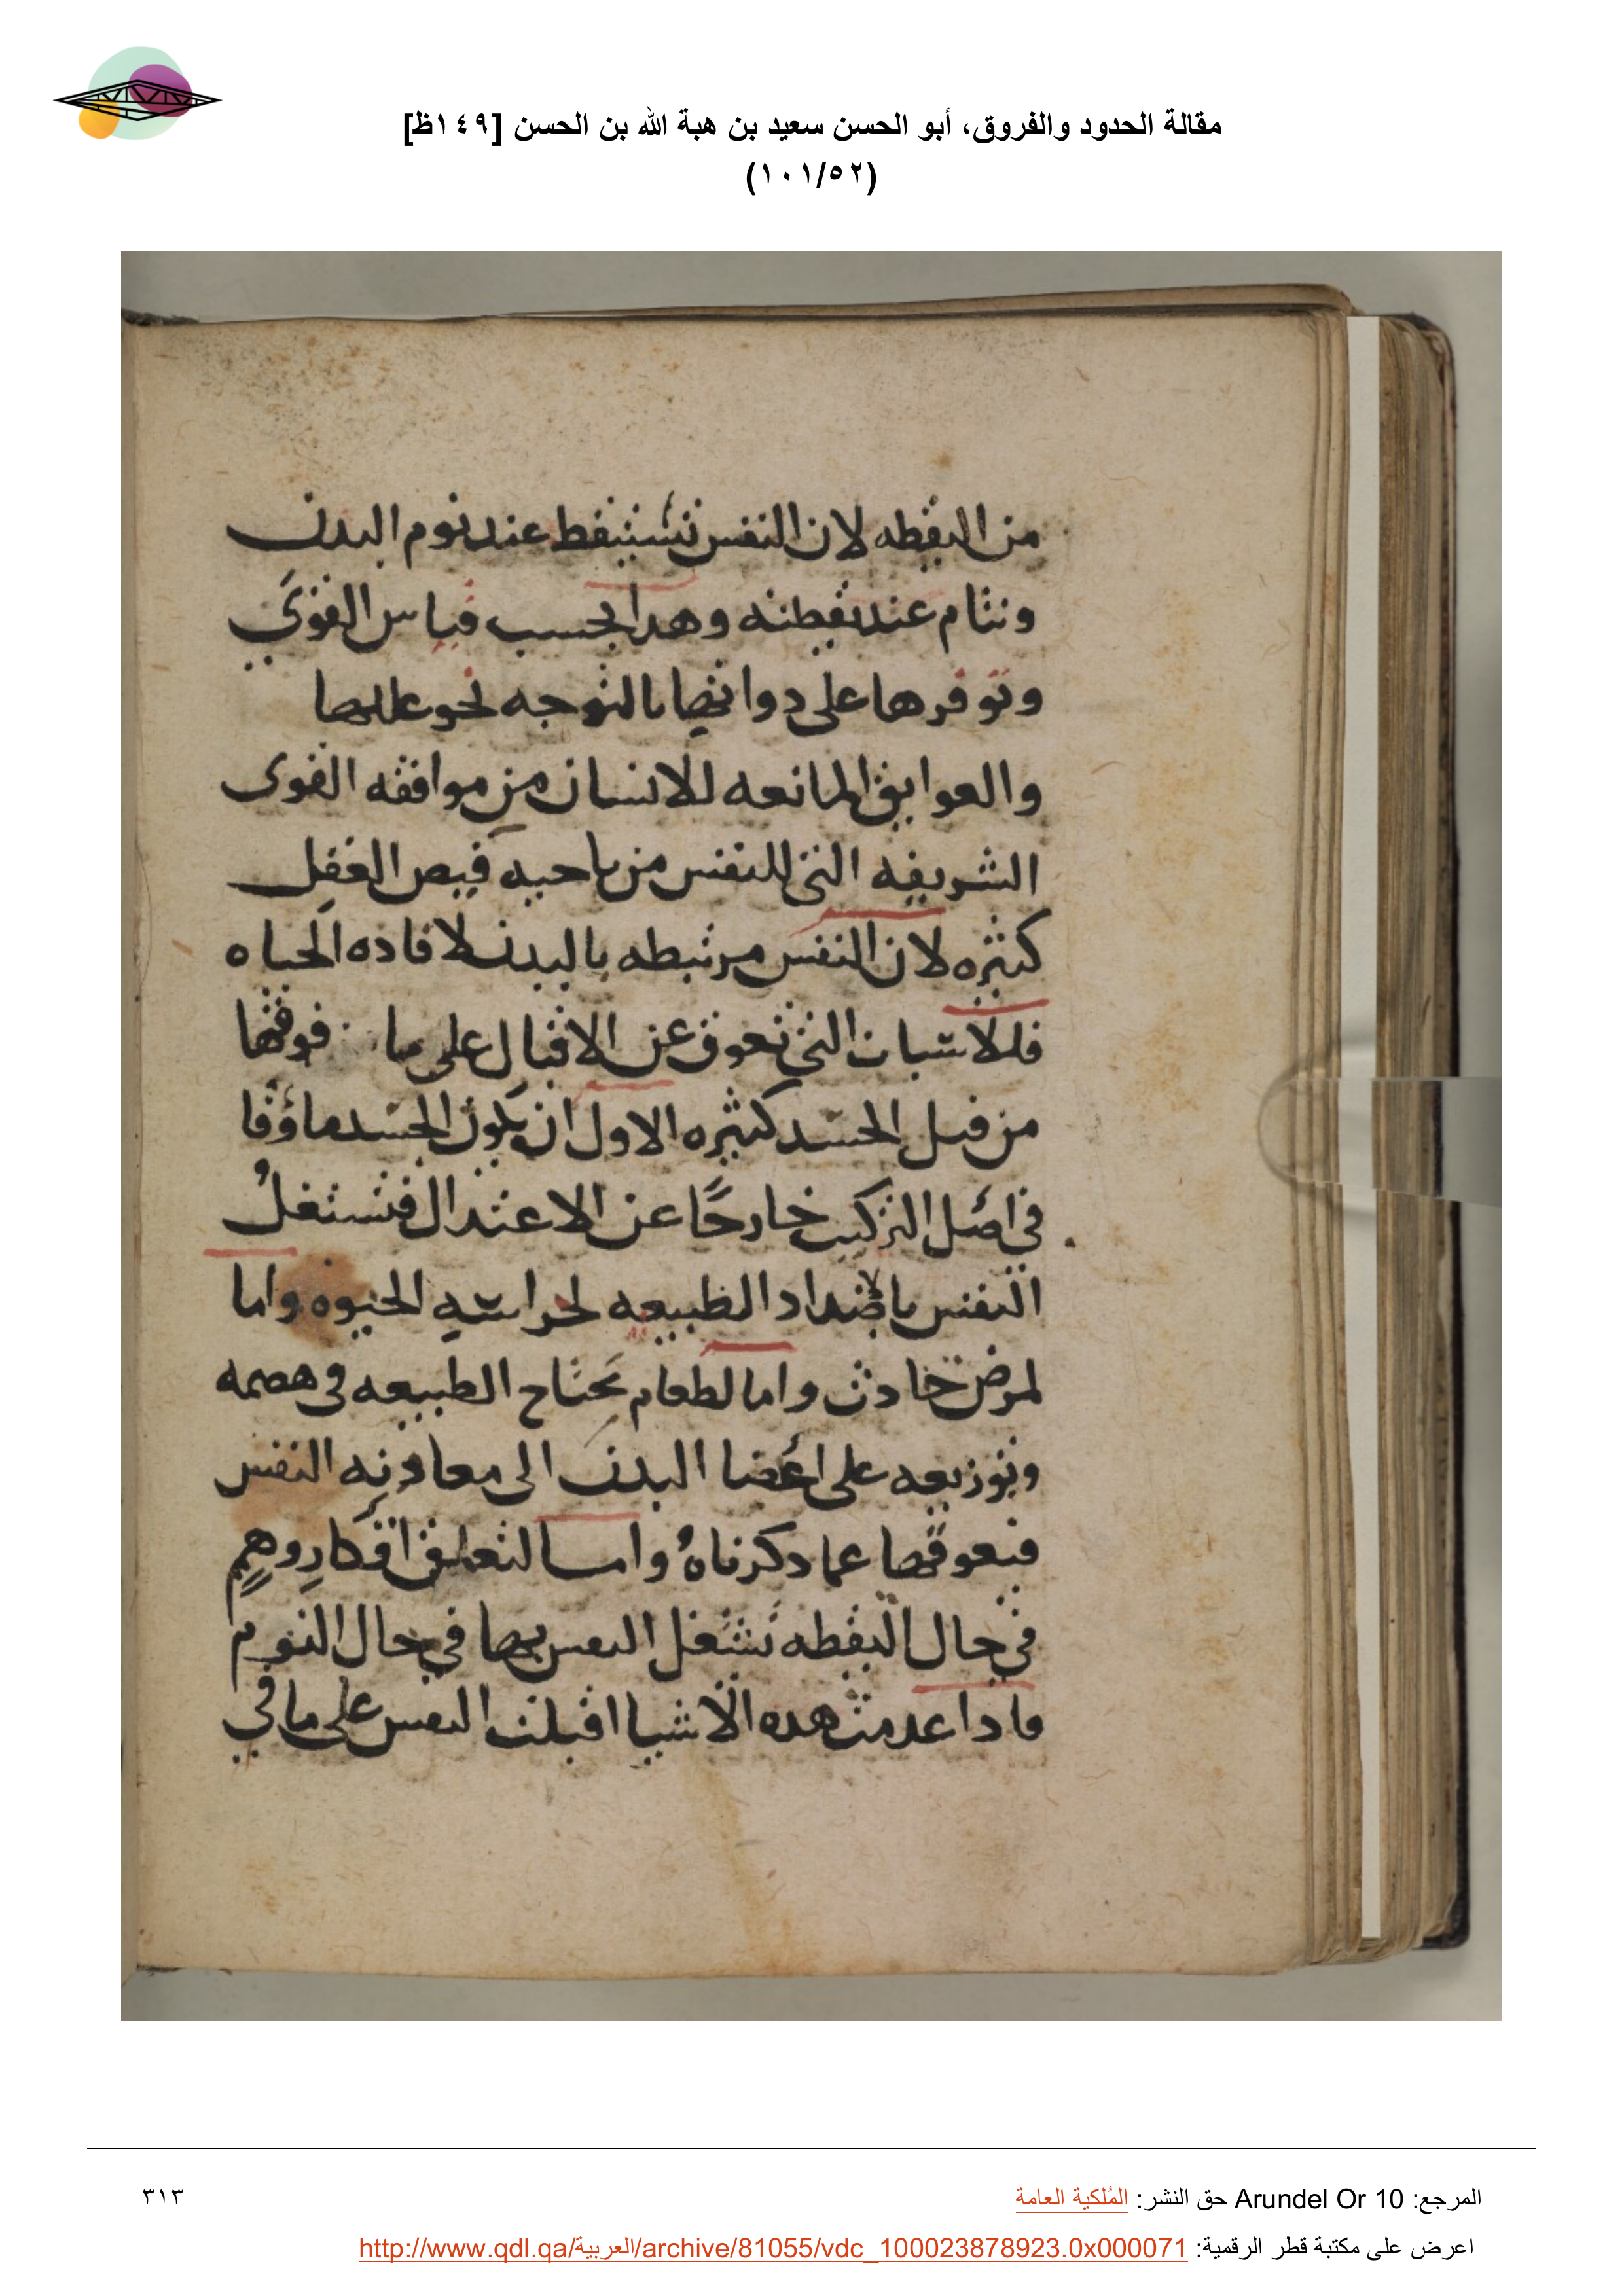 مقالة الحدود والفروق، أبو الحسن سعيد بن هبة الله بن الحسن [١٤٩ظ]
(١٠١/٥٢)
من اليقظه لان النفس تستيقظ عند نوم البدن
وتنام عند يقظته وهدا بحسب قياس القوى
وتوفرها على دواتها بالتوجه نحو عللها
والعوايق المانعه للانسان من موافقه القوى
الشريفه التي للنفس من ناحيه فيض العقل
كثيره لان النفس مرتبطه بالبدن لافاده الحياه
فللاسباب التي تعوق عن الاقبال على ما فوقها
من قبل الجسد كثيره الاول ان يكون الجسد ماؤوفا
في اصل التركيب خارجًا عن الاعتدال فتشتغلُ
النفس بالاضداد الطبيعه لحراسه الحيوه واما
لمرض حادث واما لطعام تحتاج الطبيعه في هضمه
وتوزيعه على اعضا البدن الى معاونه النفس
فيعوقها عما دكرناهُ واما لتعلق افكارٍ وهمٍ
في حال اليقظه تشتغل النفس بها في حال النوم
فادا عدمت هده الاشيا اقبلت النفس على ما في
المرجع: Arundel Or 10 حق النشر: المُلكية العامة
٣١٣
اعرض على مكتبة قطر الرقمية: http://www.qdl.qa/العربية/archive/81055/vdc_100023878923.0x000071